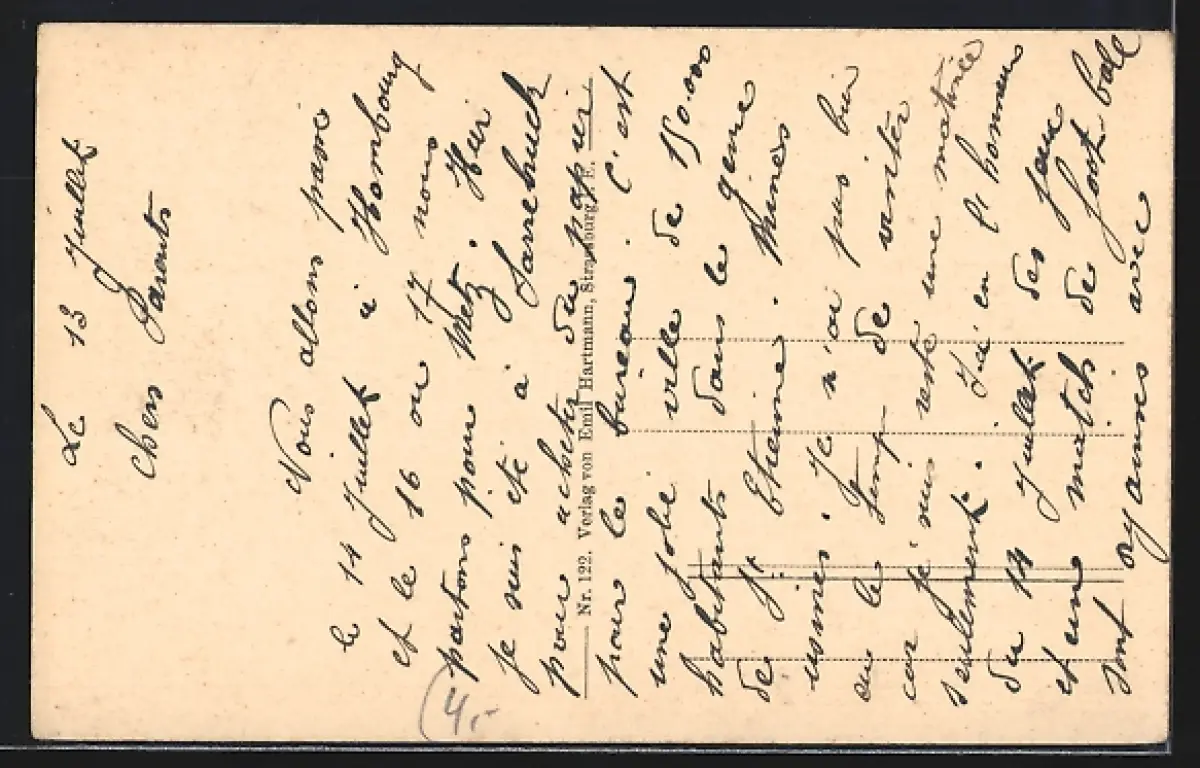 Le 13 Juillet
Chers Parents
Nous allons passé
le 14 Juillet à Hombourg
et le 16 ou 17 nous
partons pour Metz. Hier
je suis été à Sarrebruck
pour acheter du papier
Nr. 122. Verlag von Emil Hartmann, Strassburg i. E.
pour le bureau. C'est
une jolie ville de 150.000
habitants dans le genre
de St Etienne. Mines
usines. Je n'ai pas bien
eu le temp de visiter
car je suis resté une matinée
seulement. Il y a en l'honneur
du 14 Juillet des jeux
et un match de foot ball
4,-